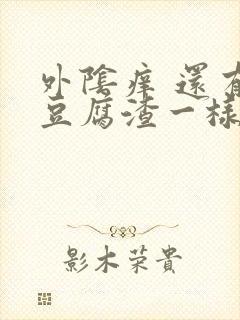 外陰痒 還有
豆腐渣一樣
影木荣貴